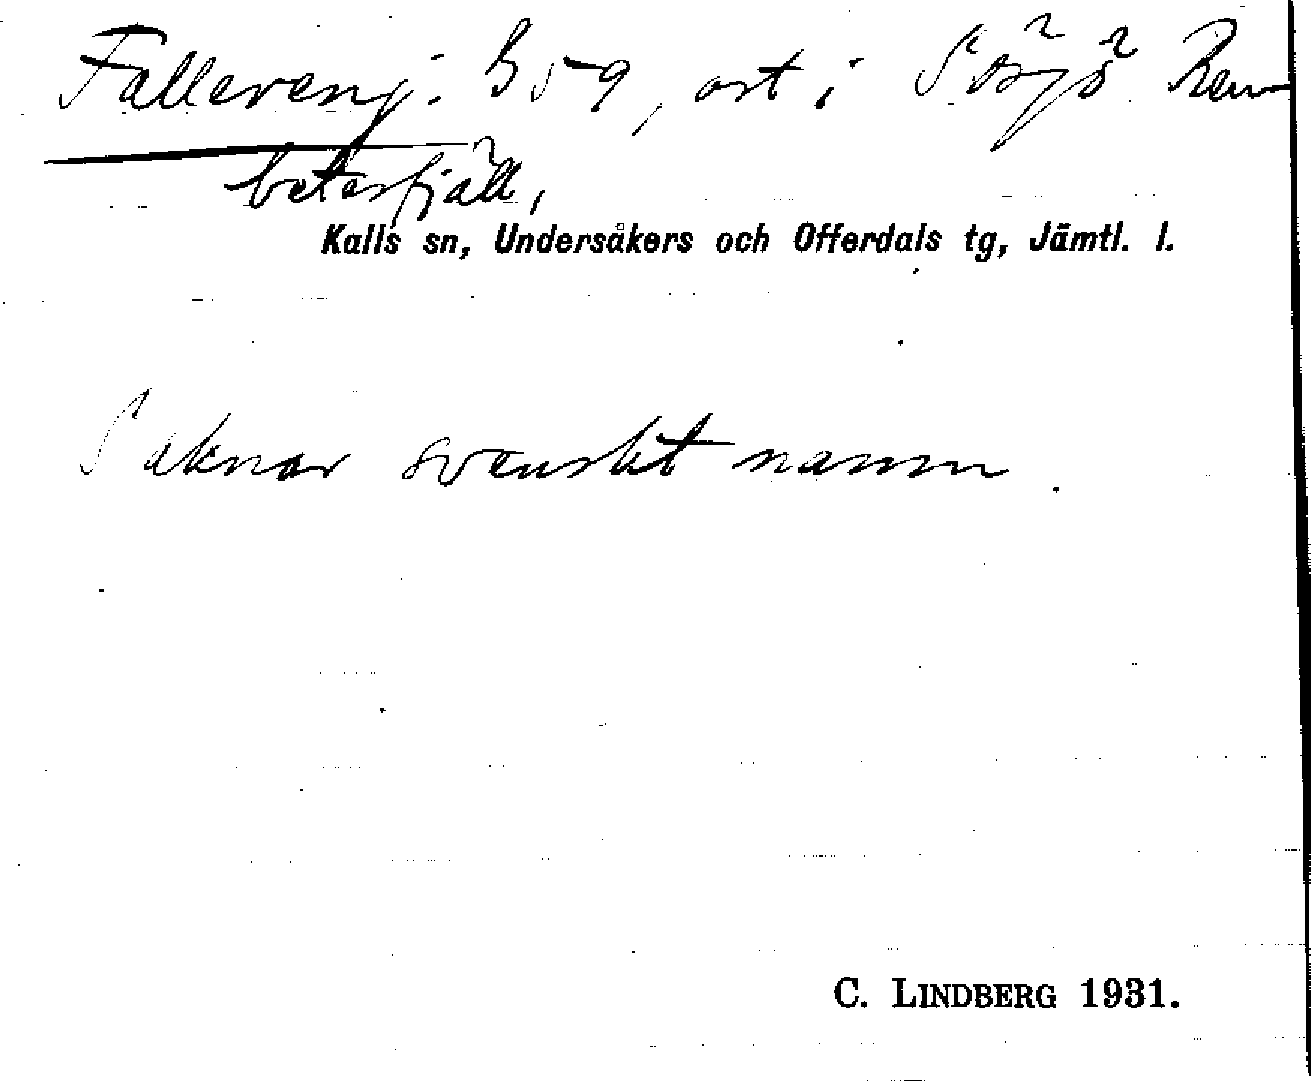 Fallereng. B 59, ort i Sösjö Ren-
betesfjäll,
Kalls sn, Undersåkers och Offerdals tg, Jämtl. l.
Saknar svenskt namn.
C. LINDBERG 1931.